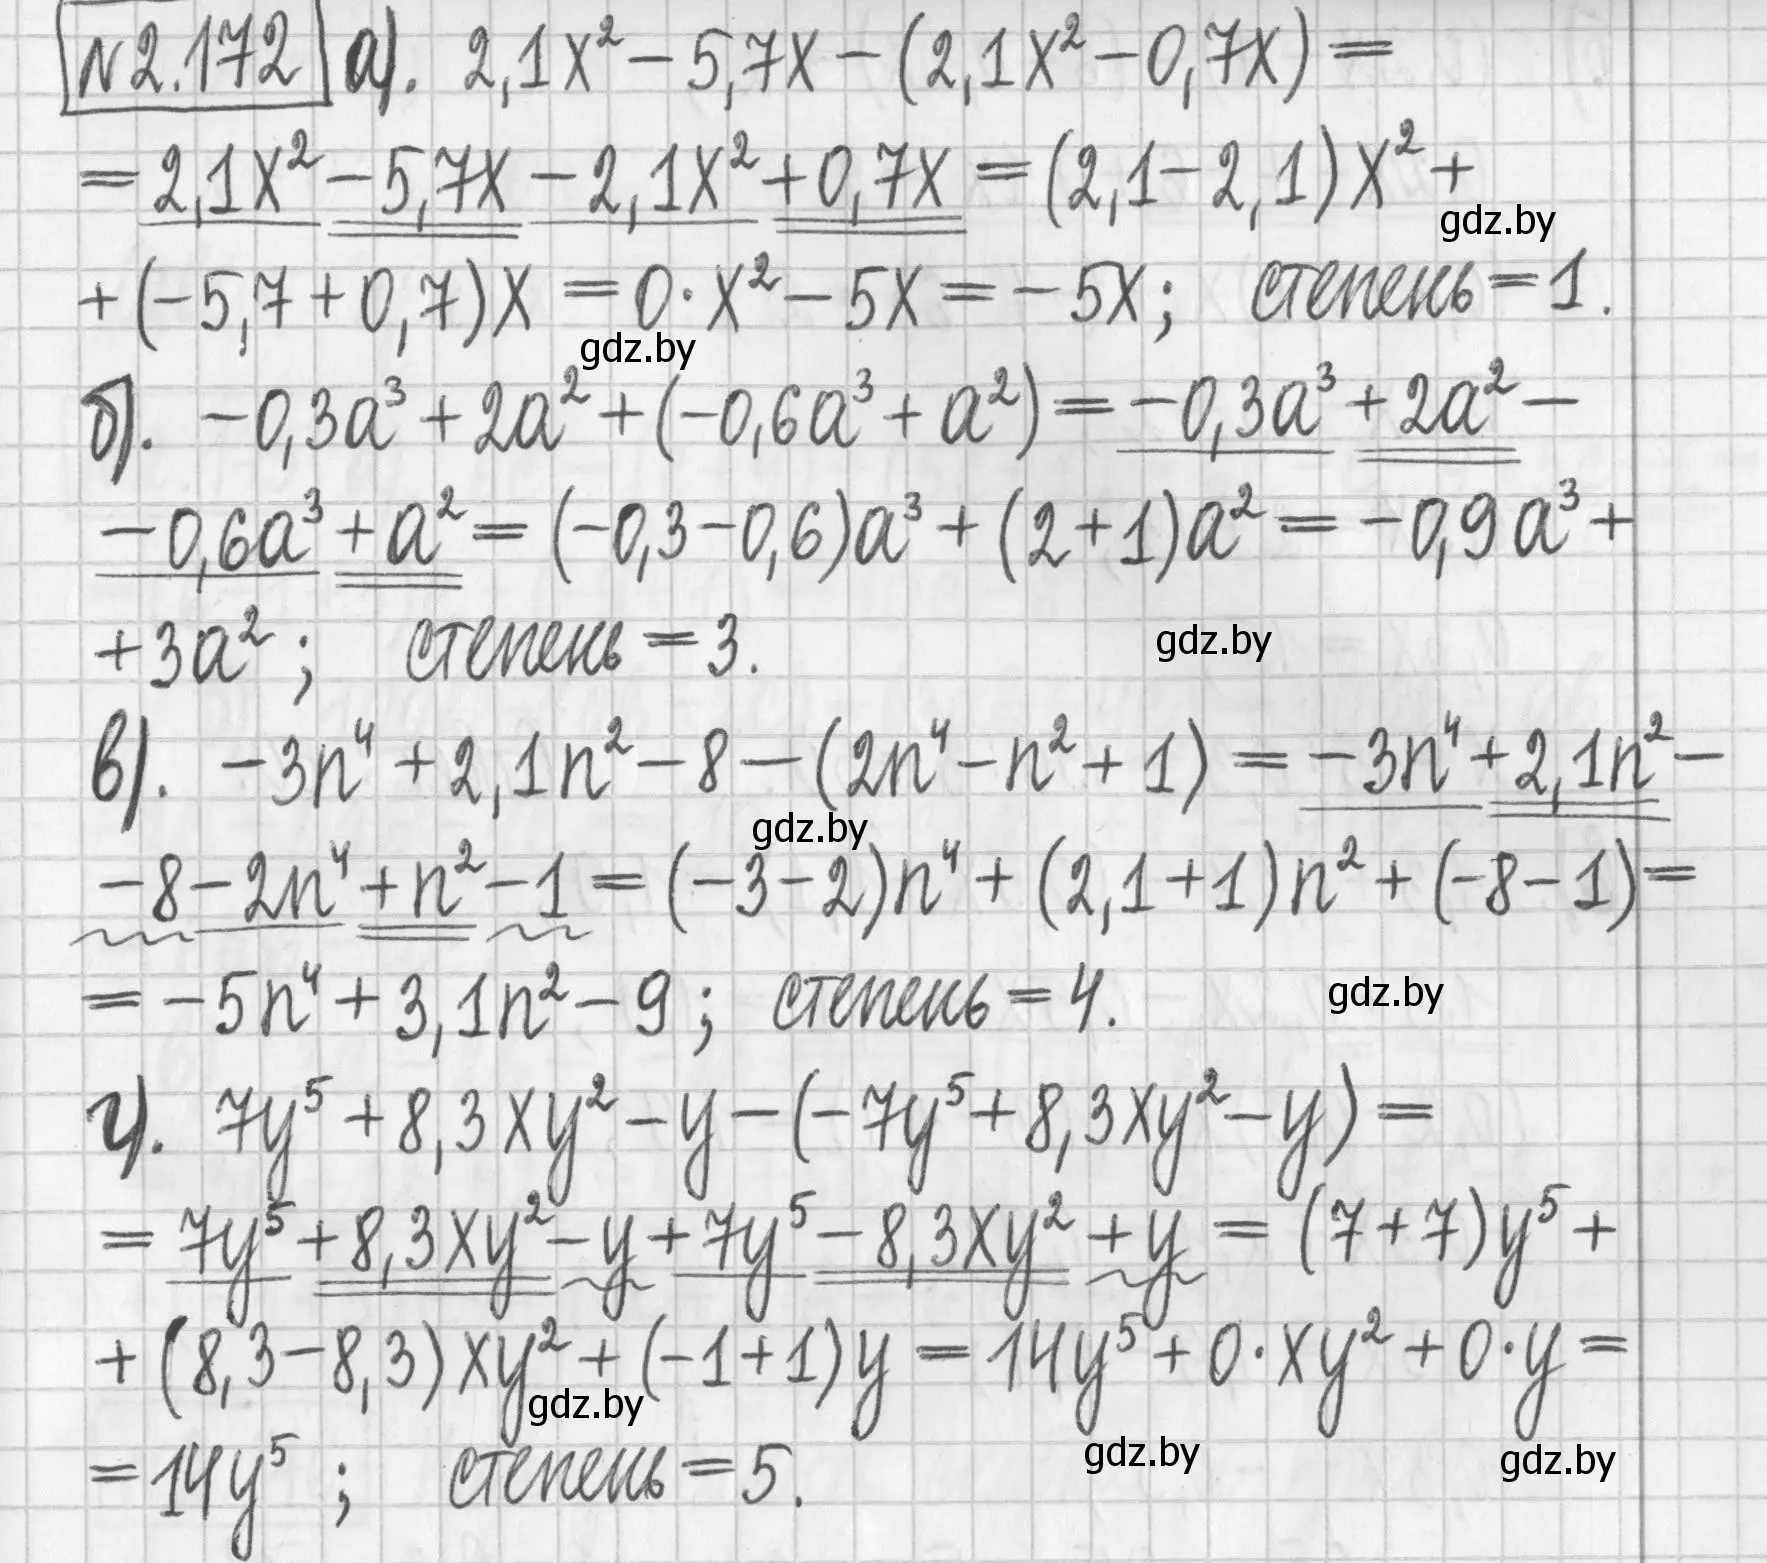 №2.172 а). 2,1x² − 5,7x − (2,1x² − 0,7x) =
= 2,1x² − 5,7x − 2,1x² + 0,7x = (2,1 − 2,1)x² +
gdz.by
+ (−5,7 + 0,7)x = 0·x² − 5x = −5x; степень = 1.
gdz.by
б). −0,3a³ + 2a² + (−0,6a³ + a²) = −0,3a³ + 2a² −
− 0,6a³ + a² = (−0,3 − 0,6)a³ + (2 + 1)a² = −0,9a³ +
+ 3a²; степень = 3. gdz.by
в). −3n⁴ + 2,1n² − 8 − (2n⁴ − n² + 1) = −3n⁴ + 2,1n² −
gdz.by
− 8 − 2n⁴ + n² − 1 = (−3 − 2)n⁴ + (2,1 + 1)n² + (−8 − 1) =
= −5n⁴ + 3,1n² − 9; степень = 4. gdz.by
г). 7y⁵ + 8,3xy² − y − (−7y⁵ + 8,3xy² − y) =
= 7y⁵ + 8,3xy² − y + 7y⁵ − 8,3xy² + y = (7 + 7)y⁵ +
+ (8,3 − 8,3)xy² + (−1 + 1)y = 14y⁵ + 0·xy² + 0·y =
gdz.by
= 14y⁵; степень = 5. gdz.by gdz.by